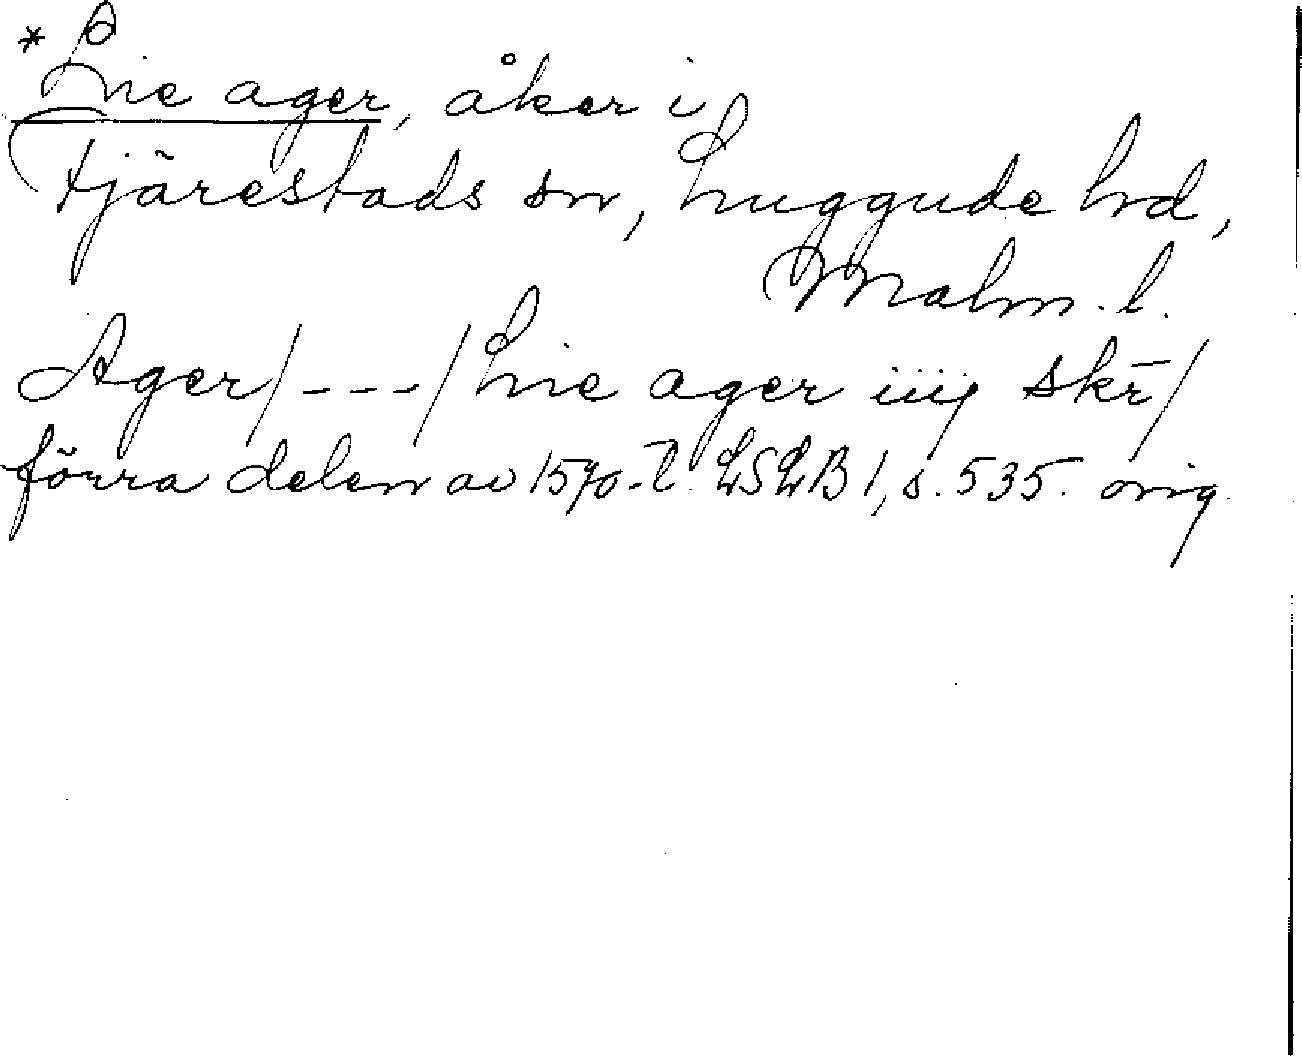 *Lie ager, åker i
Fjärestads sn, Luggude hd,
Malm. l.
Ager/---/Lie ager iiij skr̄/
förra delen av 1570-t. LSLB 1, s. 535. orig.